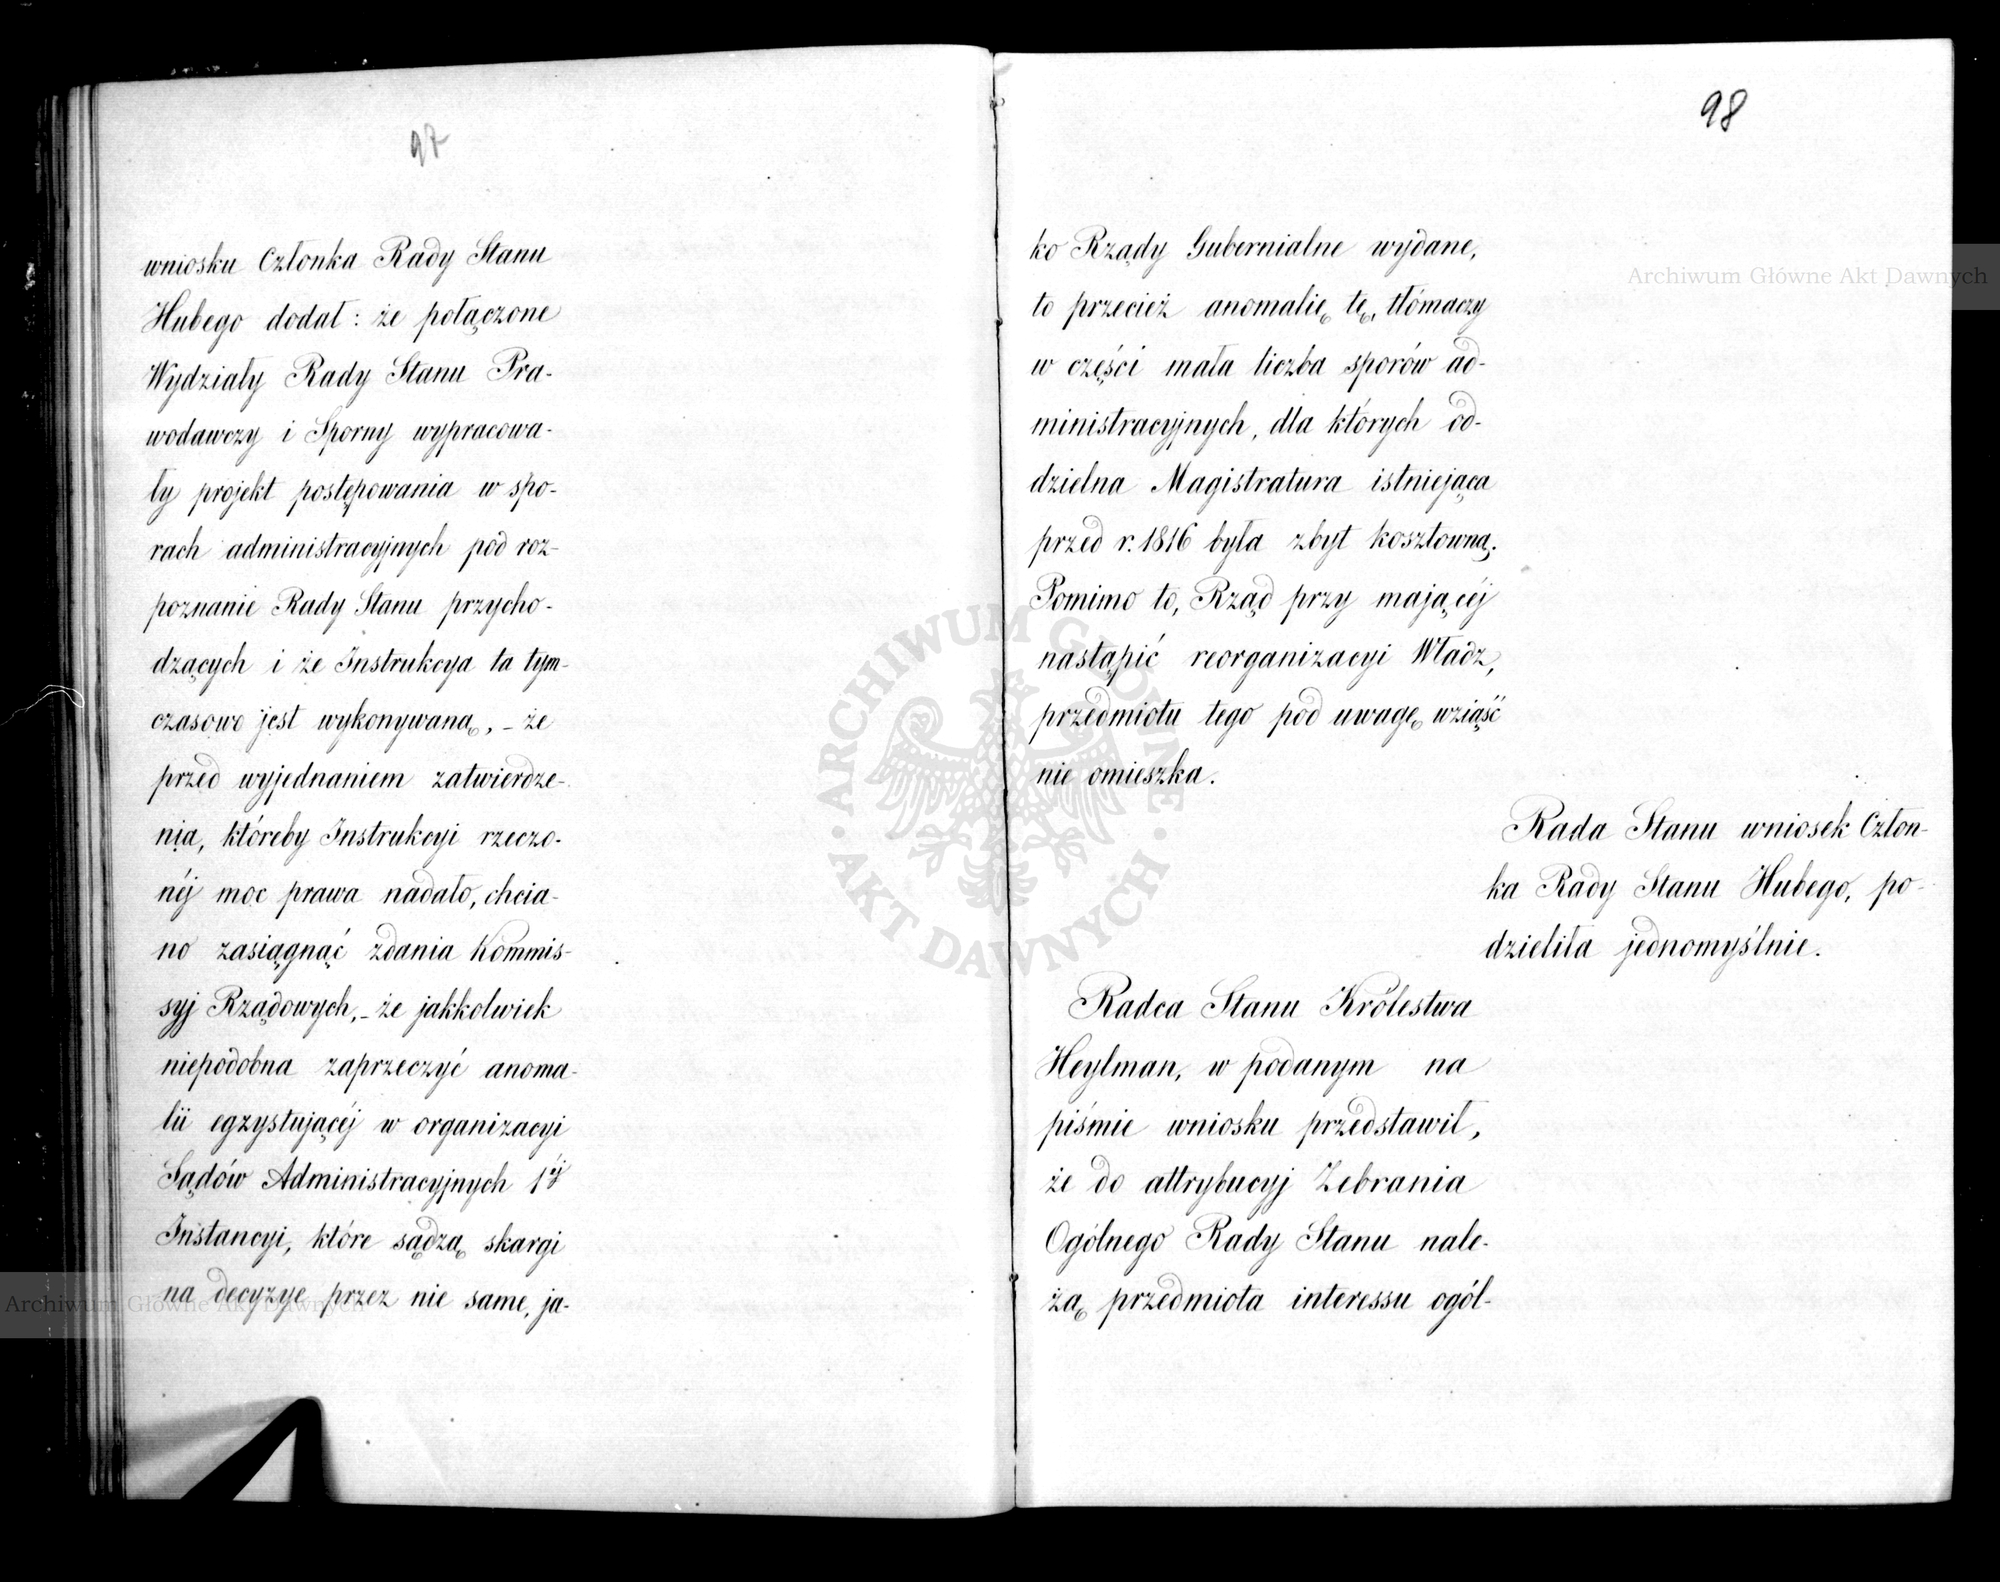 97
wniosku Członka Rady Stanu
Hubego dodał: że połączone
Wydziały Rady Stanu Pra-
wodawczy i Sporny wypracowa-
ły projekt postępowania w spo-
rach administracyjnych pod roz-
poznanie Rady Stanu przycho-
dzących i że Instrukcya ta tym-
czasowo jest wykonywaną, – że
przed wyjednaniem zatwierdze-
nia, któreby Instrukcyi rzeczo-
néj moc prawa nadało, chcia-
no zasiągnąć zdania Kommis-
syj Rządowych, – że jakkolwiek
niepodobna zaprzeczyć anoma-
lii egzystującéj w organizacyi
Sądów Administracyjnych 1éj
Instancyi, które sądzą skargi
na decyzye przez nie same, ja-
98
ko Rządy Gubernialne wydane,
to przecież anomalię tę, tłómaczy
w części mała liczba sporów ad-
ministracyjnych, dla których od-
dzielna Magistratura istniejąca
przed r. 1816 była zbyt kosztowną.
Pomimo to, Rząd przy mającéj
nastąpić reorganizacyi Władz,
przedmiotu tego pod uwagę wziąść
nie omieszka.
Rada Stanu wniosek Człon-
ka Rady Stanu Hubego, po-
dzieliła jednomyślnie.
Radca Stanu Królestwa
Heylman, w podanym na
piśmie wniosku przedstawił,
że do attrybucyj Zebrania
Ogólnego Rady Stanu nale-
żą przedmiota interessu ogól-
Archiwum Główne Akt Dawnych
Archiwum Główne Akt Dawnych
ARCHIWUM GŁÓWNE · AKT DAWNYCH ·